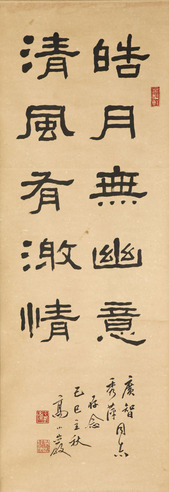 皓月無幽意
清風有激情
廣智
秀萍同志
存念
己巳立秋
高小岩